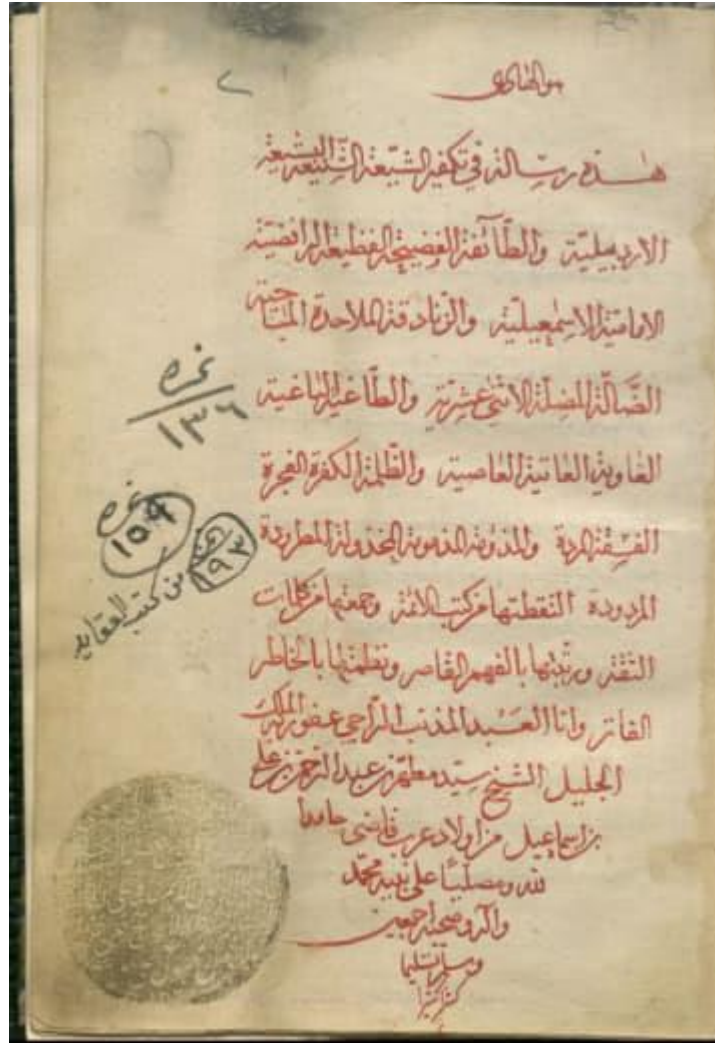 هو الهادي
هذه رسالة في تكفير الشيعة الشنيعة البشيعة
الاردبيلية والطائفة الفضيحة الفظيعة الرافضية
الامامية الاسمعيلية والزنادقة الملاحدة
الضالة المضلة الاثنى عشرية والطاغية الباغية
الغاوية العاتية العاصية والظلمة الكفرة الفجرة
الفسقة المردة والمذمومة المخذولة المطرودة
المردودة التقطتها من كتب الائمة وجمعتها من كلمات
الثقة ورتبتها بالفهم القاصر ونظمتها بالخاطر
الفاتر وانا العبد المذنب الراجي عفو الملك
الجليل الشيخ سيد مطهر بن عبد الرحمن بن علي
بن اسماعيل من اولاد عرب قاضى حامدا
لله ومصليا على نبيه محمد
واله وصحبه اجمعين
وسلم تسليما
كثيرا كثيرا
نمره
١٣٦
نمره
١٥٩
١٩٣
من كتب العقايد